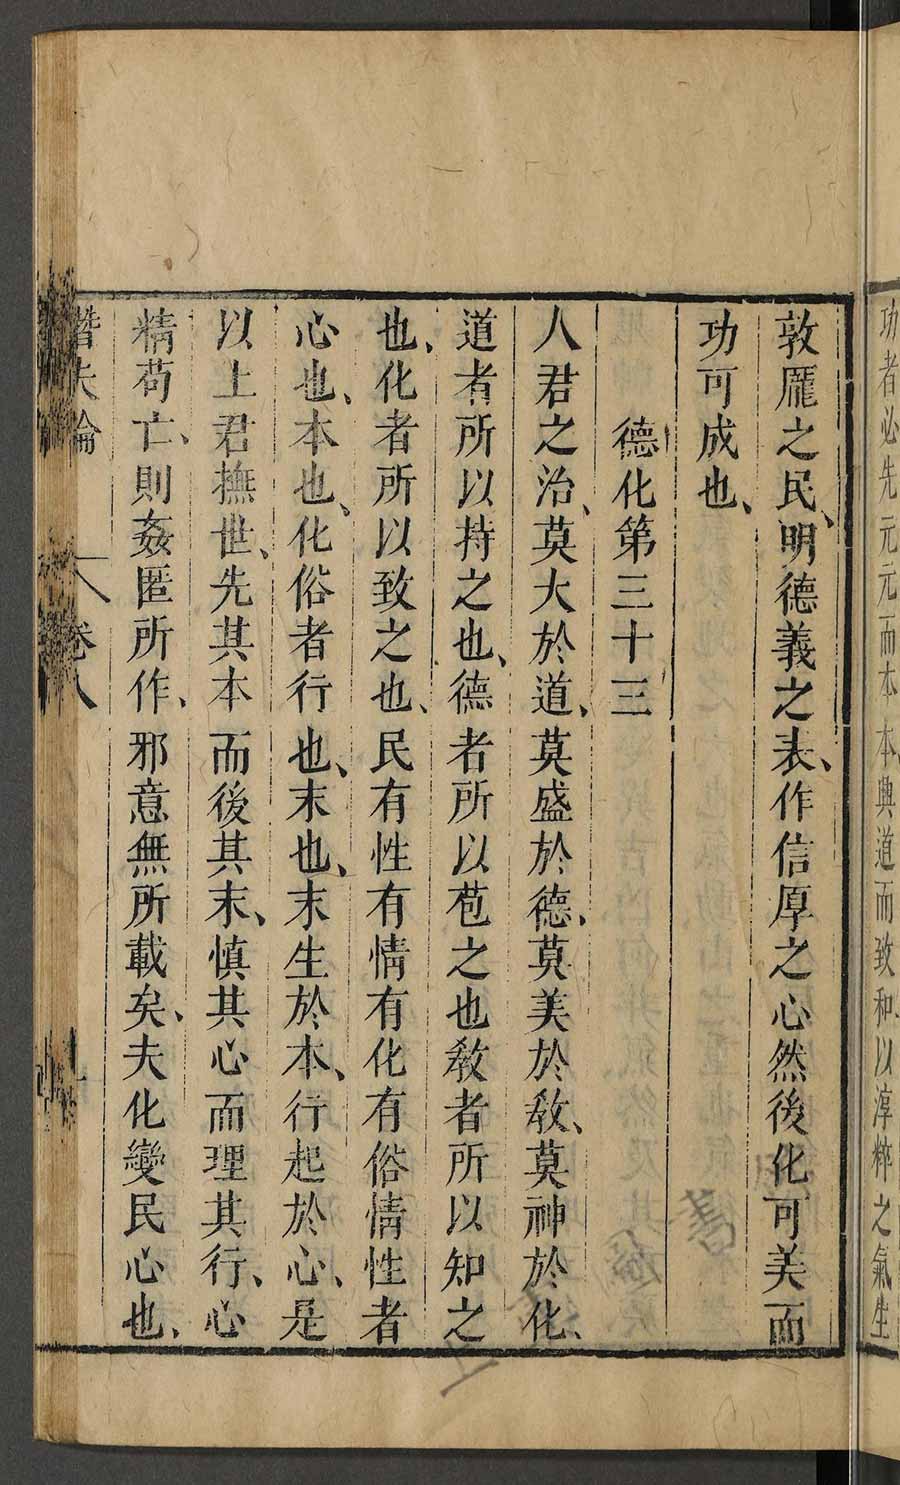 功者必先元元而本本典道而致和、以淳粹之氣生
敦厖之民、明德義之表、作信厚之心然後化可美而
功可成也、
德化第三十三
人君之治、莫大於道、莫盛於德、莫美於敎、莫神於化、
道者所以持之也、德者所以苞之也敎者所以知之
也、化者所以致之也、民有性有情有化有俗情性者
心也、本也、化俗者行也、末也、末生於本、行起於心、是
以上君撫世、先其本而後其末、慎其心而理其行、心
精苟亡、則姦匿所作、邪意無所載矣、夫化變民心也、
潛夫論 卷八